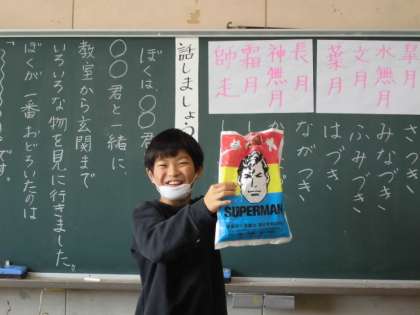 皐月
水無月
文月
葉月
長月
神無月
霜月
師走
さつき
みなづき
ふみづき
はづき
ながつき
話しましょう
ぼくは〇〇君
〇〇君と一緒に
教室から玄関まで
いろいろな物を見に行きました。
ぼくが一番おどろいたのは
です。
SUPERMAN